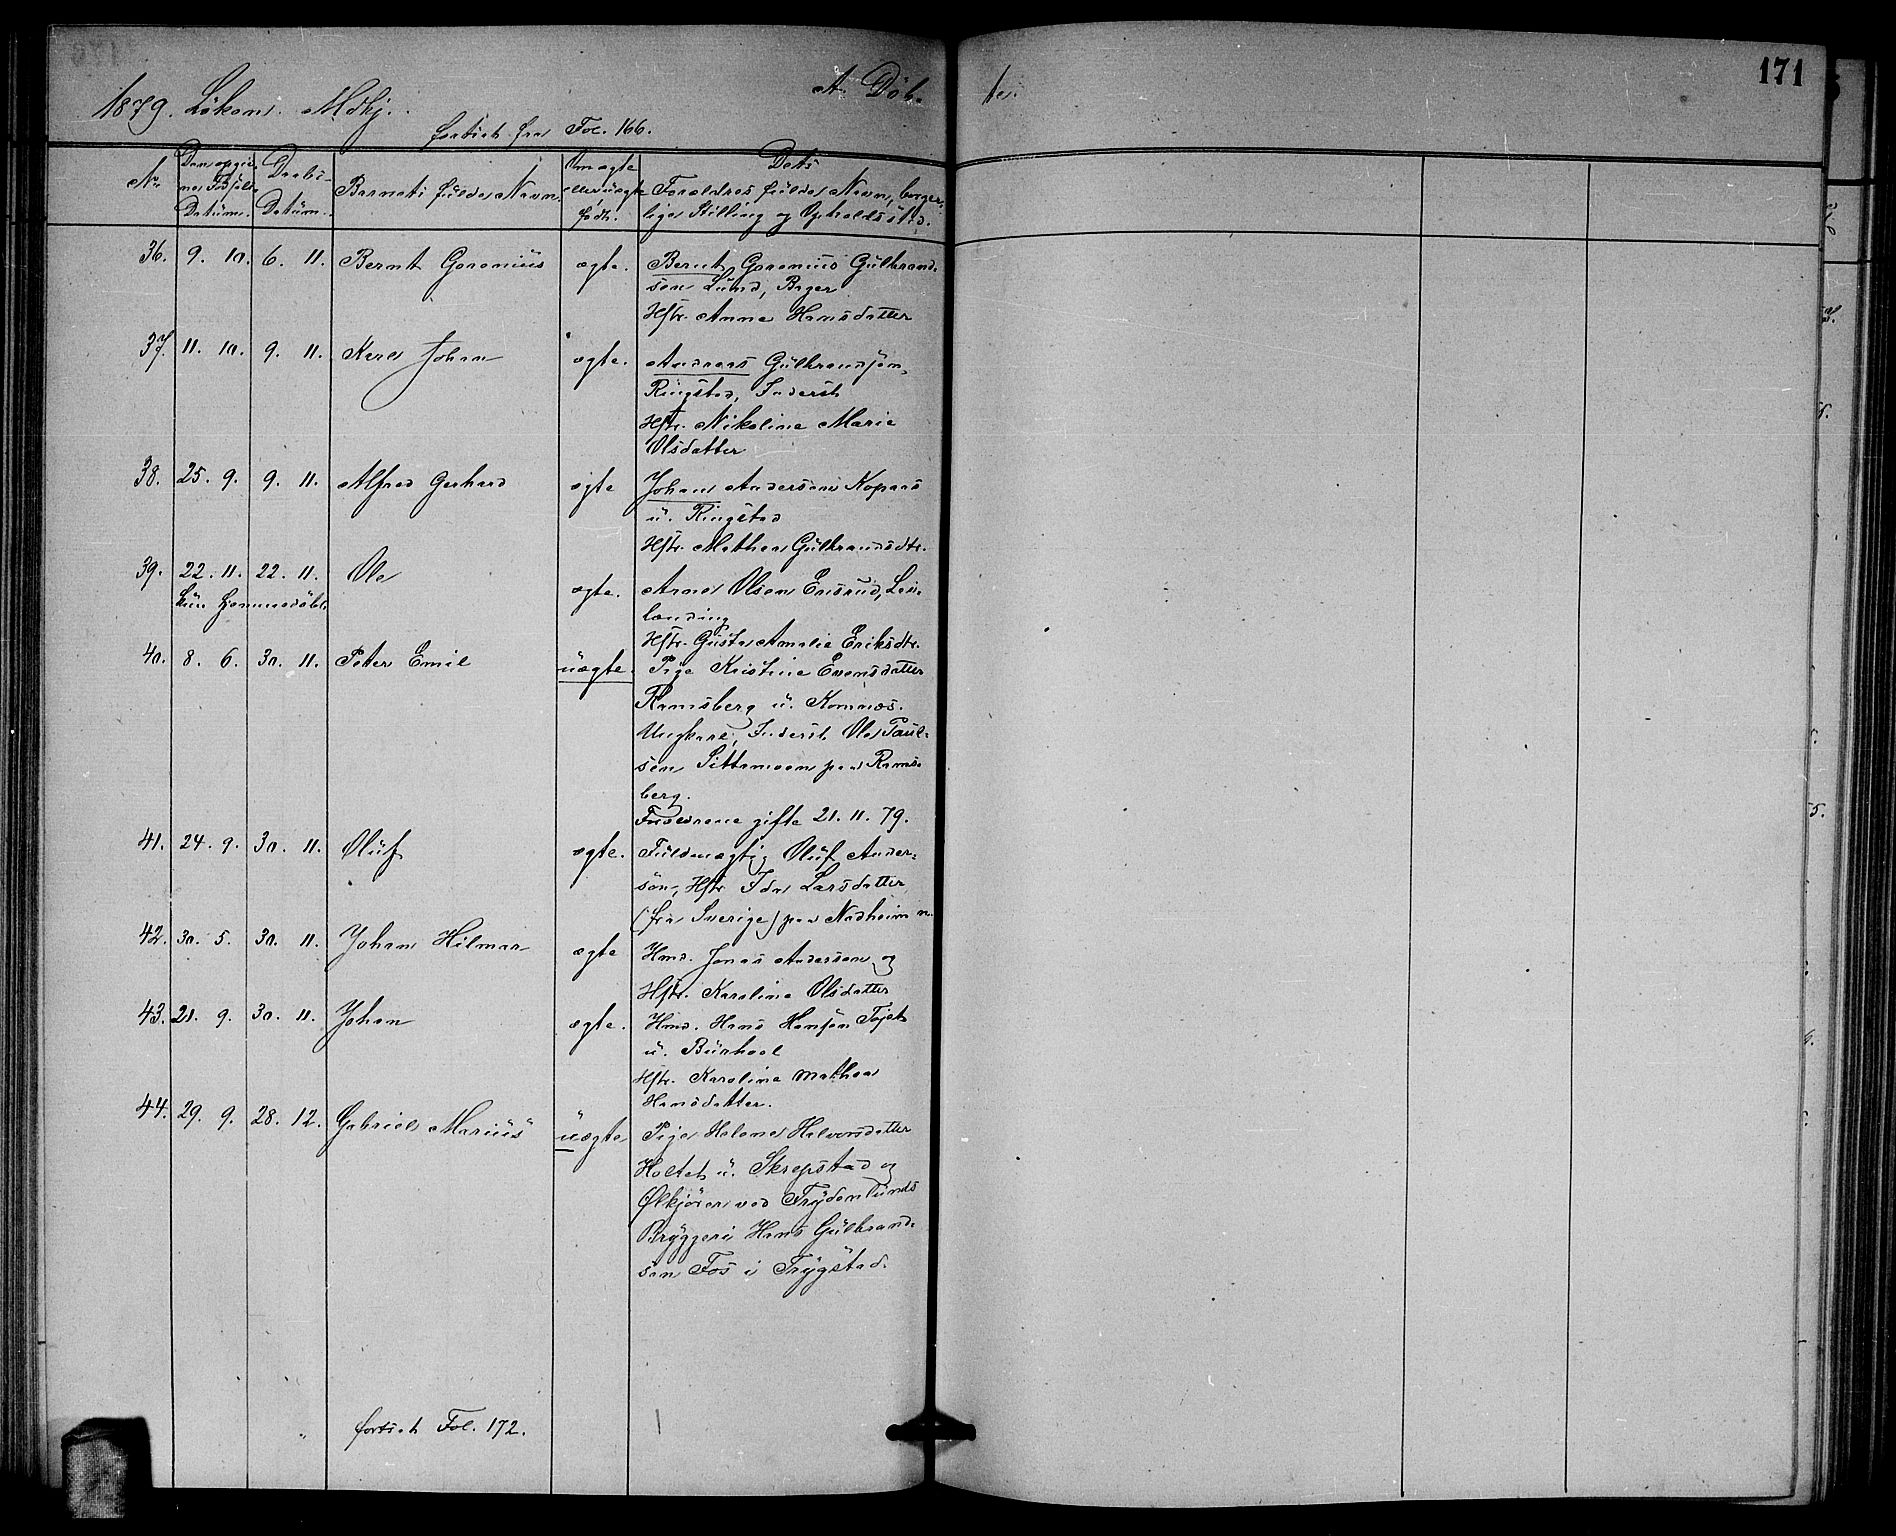 171
1879. Løkens Mdkj. A. Døb- te.
fortsat fra Fol. 166.
No. Den opgiv- Daabs- Barnets fulde Navn. Om ægte Dets
nes Fødsels Datum. eller uægte Forældres fulde Navn, borger-
Datum. født. lige Stilling og Opholdssted.
36. 9. 10. 6. 11. Bernt Geronius ægte. Bernt Geronius Gulbrand-
sen Lund, Bager
Hstr. Anna Hansdatter
37. 11. 10. 9. 11. Karl Johan ægte. Andreas Gulbrandsen
Ringstad, Inderst
Hstr. Nikoline Marie
Olsdatter
38. 25. 9. 9. 11. Alfred Gerhard ægte Johan Andersen Kopaas
u. Ringstad
Hstr. Mathea Gulbrandsdtr.
39. 22. 11. 22. 11. Ole ægte. Arne Olsen Ensrud, Lei-
kun hjemmedøbt lænding
Hstr. Gusta Amalie Eriksdtr.
40. 8. 6. 30. 11. Peter Emil uægte. Pige Kristine Evensdatter
Ramsberg u. Komnæs.
Ungkarl, Inderst Ole Paul-
sen Sittamoen paa Rams-
berg.
Forældrene gifte 21. 11. 79.
41. 24. 9. 30. 11. Oluf ægte. Fuldmægtig Oluf Ander-
son, Hstr. Ida Larsdatter
(fra Sverige) paa Nadheim
42. 30. 5. 30. 11. Johan Hilmar ægte Hmd. Jonas Anderson og
Hstr. Karoline Olsdatter
43. 21. 9. 30. 11. Johan ægte. Hmd. Hans Hansen Tajet
u. Burhool
Hstr. Karoline Mathea
Hansdatter.
44. 29. 9. 28. 12. Gabriel Marius uægte Pige Helene Halvorsdatter
Holtet u. Skrepstad og
Ølkjører ved Frydenlunds
Bryggeri Hans Gulbrand-
sen Fos i Trygstad.
fortsat Fol. 172.